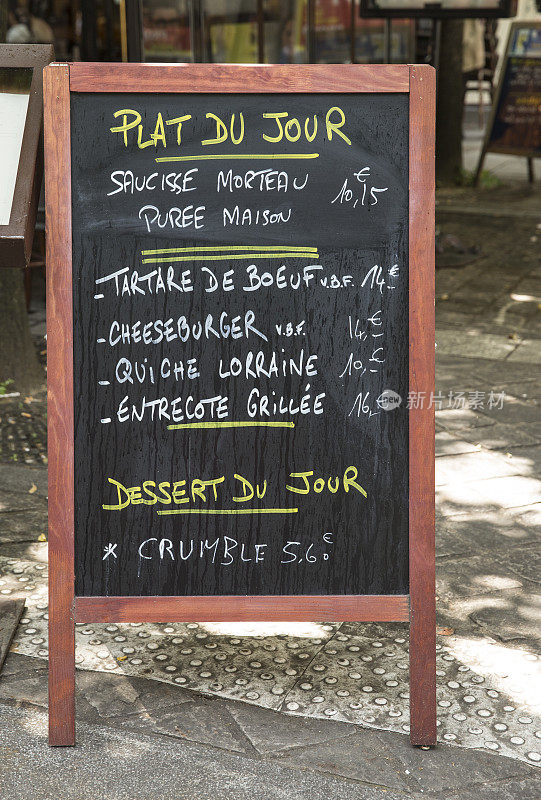 PLAT DU JOUR
SAUCISSE MORTEAU 10,€15
PURÉE MAISON
- TARTARE DE BOEUF V.B.F. 14,€
- CHEESEBURGER V.B.F. 14,€
- QUICHE LORRAINE 10,€
- ENTRECOTE GRILLÉE 16,€
new 新图网
DESSERT DU JOUR
* CRUMBLE 5,€